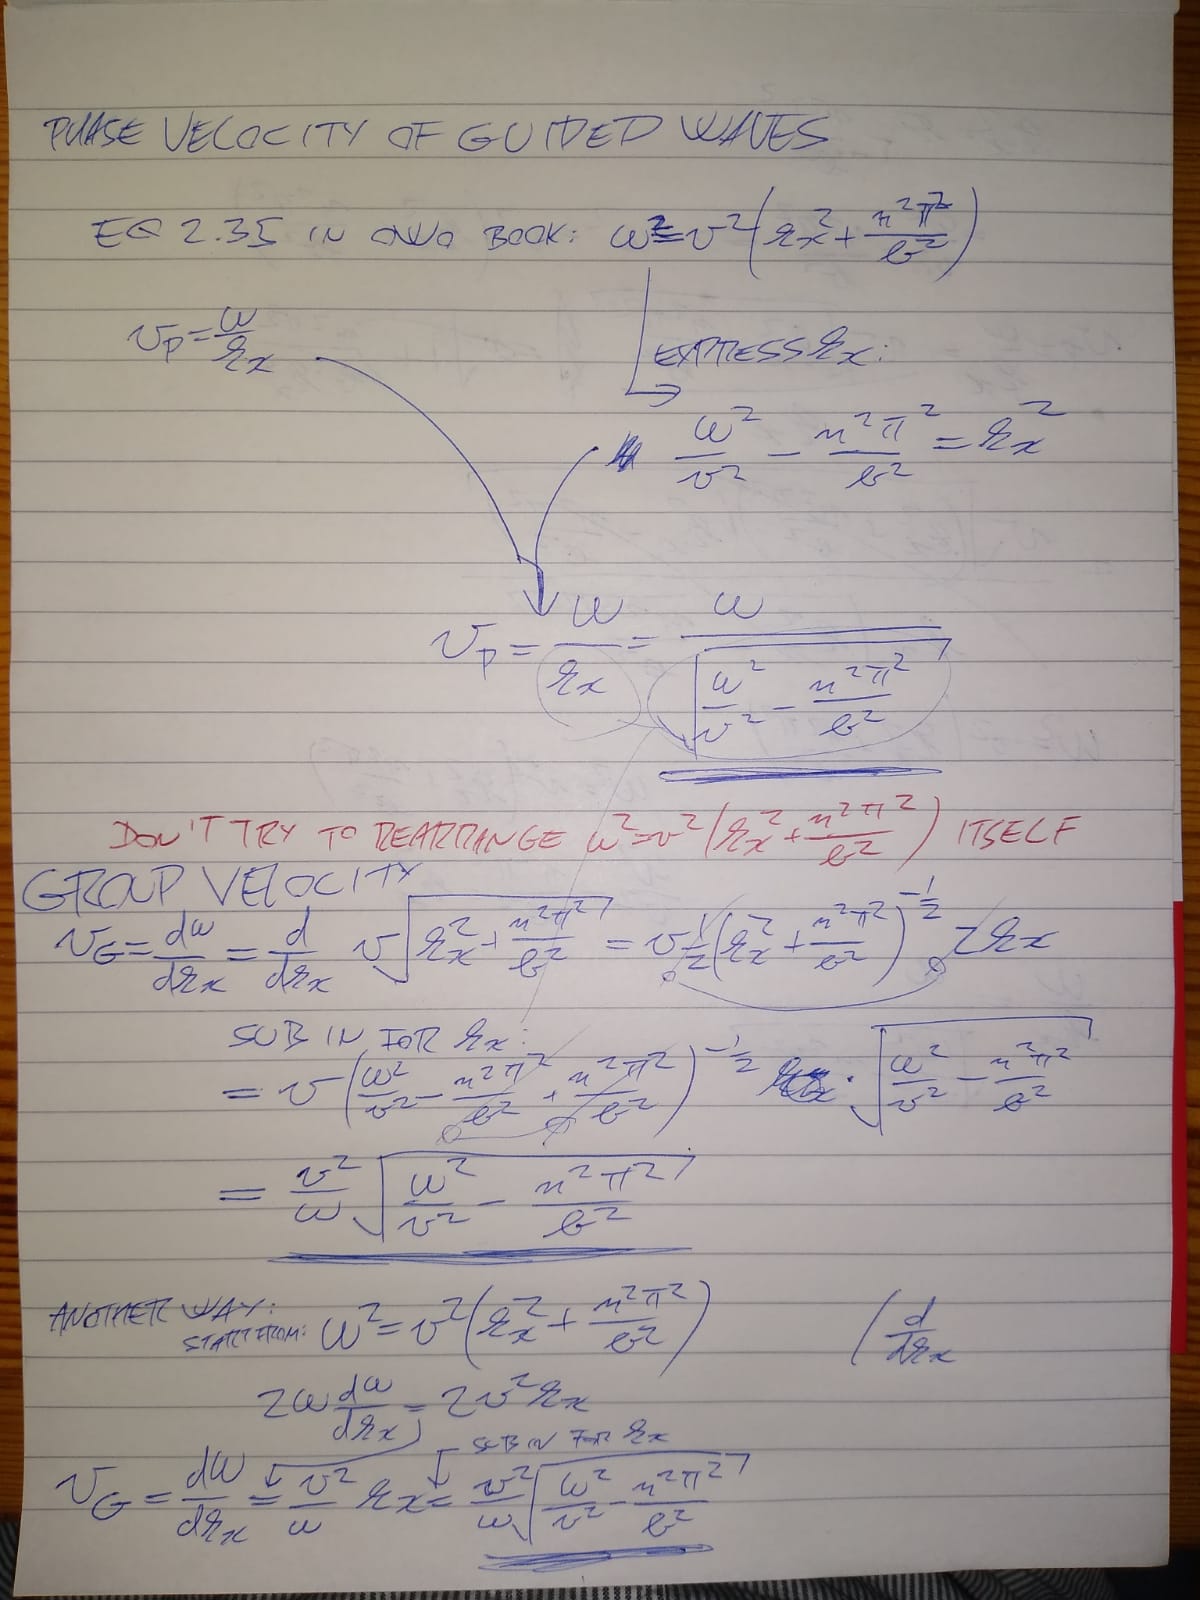 PHASE VELOCITY OF GUIDED WAVES
EQ 2.35 IN OWO BOOK: ω²=v²(kx²+n²π²/b²)
vp=ω/kx
EXPRESS kx:
ω²/v² - n²π²/b² = kx²
vp = ω/kx = ω/√(ω²/v² - n²π²/b²)
DON'T TRY TO REARRANGE ω²=v²(kx²+n²π²/b²) ITSELF
GROUP VELOCITY
vG = dω/dkx = d/dkx v√(kx²+n²π²/b²) = v 1/2 (kx²+n²π²/b²)^-1/2 2kx
SUB IN FOR kx:
= v(ω²/v² - n²π²/b² + n²π²/b²)^-1/2 · √(ω²/v² - n²π²/b²)
= v²/ω √(ω²/v² - n²π²/b²)
ANOTHER WAY:
START FROM: ω²=v²(kx²+n²π²/b²) (d/dkx
2ω dω/dkx = 2v²kx
SUB IN FOR kx
vG = dω/dkx = v²/ω kx = v²/ω √(ω²/v² - n²π²/b²)